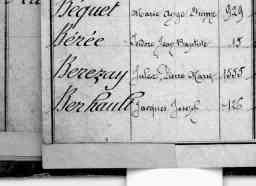 Béguet Marie Ange Pierre 929
Bérée Isidore Jean Baptiste 15
Berezay Jules, Pierre Marie 1555
Berhault Jacques Joseph 126